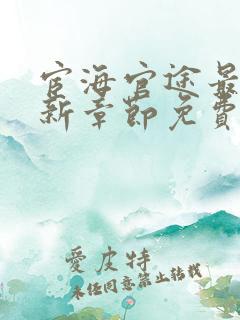 宦海官途最
新章節免費
愛皮特
未經同意禁止轉載